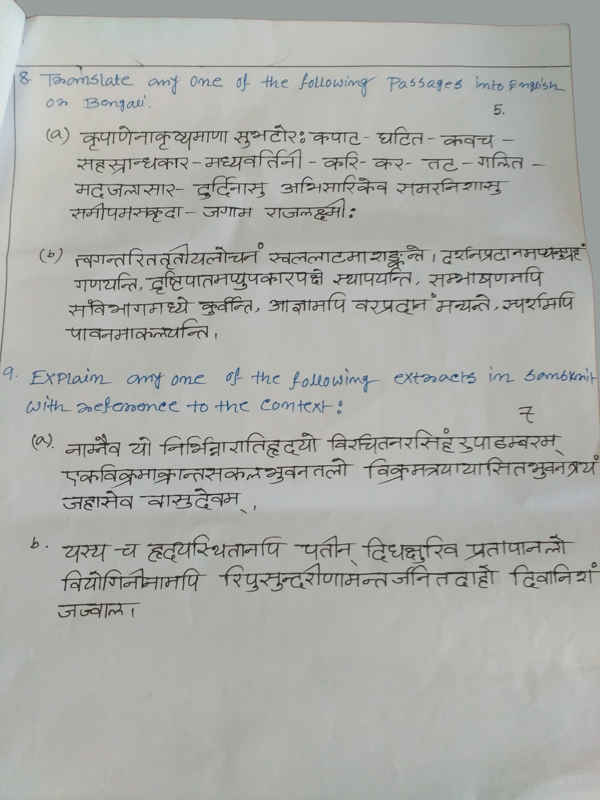 8. Translate any one of the following Passages into English
or Bengali.
5.
(a) कृपाणेनाकृष्यमाणा सुभटोरः कपाट - घटित - कवच -
सहस्रान्धकार - मध्यवर्तिनी - करि - कर - तट - गलित -
मदजलासार - दुर्दिनासु अभिसारिकेव समरनिशासु
समीपमसकृदा - जगाम राजलक्ष्मीः
(b) त्वगन्तरिततृतीयलोचनं स्वललाटमाशङ्कन्ते। दर्शनप्रदानमप्यनुग्रहं
गणयन्ति, दृष्टिपातमप्युपकारपक्षे स्थापयन्ति, सम्भाषणमपि
संविभागमध्ये कुर्वन्ति, आज्ञामपि वरप्रदानं मन्यन्ते, स्पर्शमपि
पावनमाकलयन्ति।
9. Explain any one of the following extracts in Sanskrit
with reference to the context:
7
(a). नाम्नैव यो निर्भिन्नारातिहृदयो विरचितनरसिंहरुपाडम्बरम्
एकविक्रमाक्रान्तसकलभुवनतलो विक्रमत्रयायासितभुवनत्रयं
जहासेव वासुदेवम्।
b. यस्य च हृदयस्थितानपि पतीन् दिधक्षुरिव प्रतापानलो
वियोगिनीनामपि रिपुसुन्दरीणामन्तर्जनितदाहो दिवानिशं
जज्वाल।